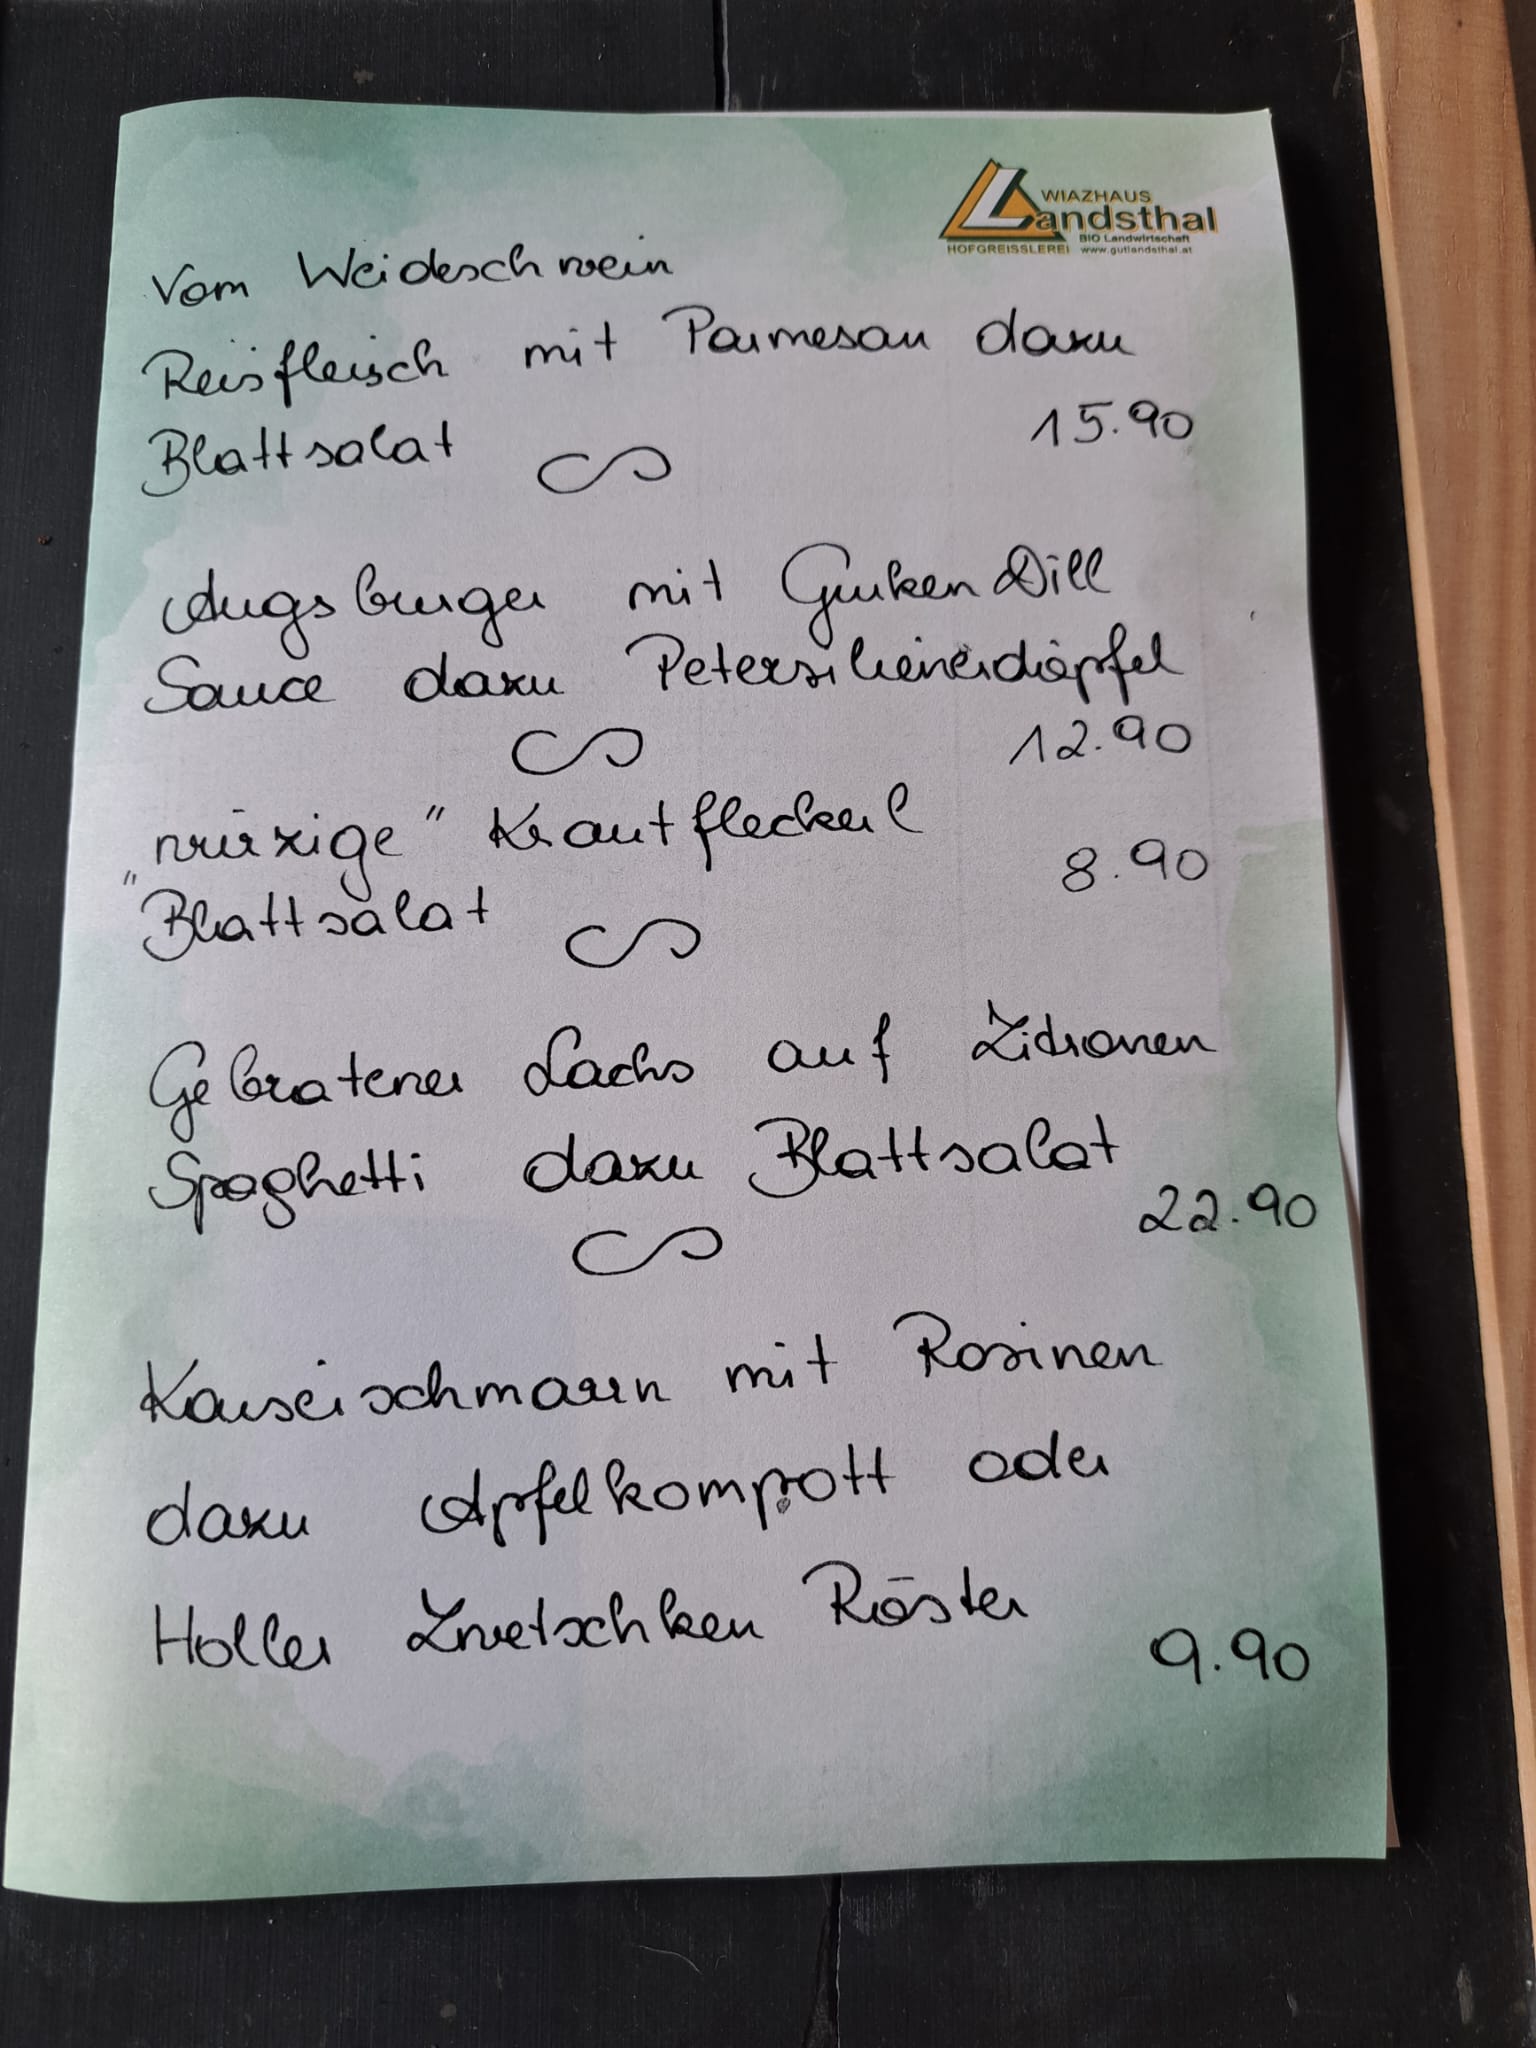 WIAZHAUS
Landsthal
BIO Landwirtschaft
HOFGREISSLEREI www.gutlandsthal.at
Vom Weideschwein
Reisfleisch mit Parmesan dazu
Blattsalat 15.90
Augsburger mit Gurken Dill
Sauce dazu Petersilienerdäpfel
12.90
"würzige" Krautfleckerl
8.90
Blattsalat
Gebratener Lachs auf Zitronen
Spaghetti dazu Blattsalat
22.90
Kaiserschmarrn mit Rosinen
dazu Apfelkompott oder
Holler Zwetschken Röster
9.90